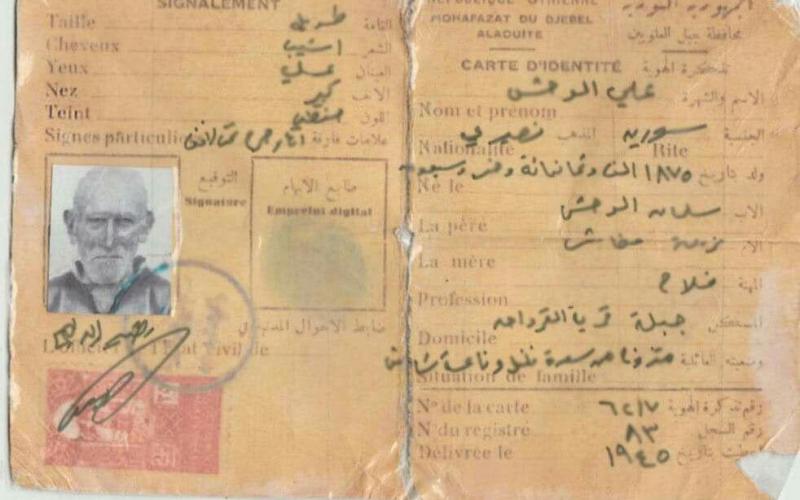 SIGNALEMENT
Taille طويل القامة
Cheveux اشيب الشعر
Yeux عسلي العينان
Nez كبير الانف
Teint حنطي اللون
Signes particuliers علامات فارقة
التوقيع
Signature
طابع الابهام
Empreint digital
ضابط الاحوال المدنية
L'officier de l'Etat civil de
الجمهورية السورية
MOHAFAZAT DU DJEBEL محافظة جبل العلويين
ALAOUITE
CARTE D'IDENTITÉ تذكرة الهوية
علي الوحش الاسم والشهرة
Nom et prénom
سوريه الجنسية نصيري المذهب
Nationalité Rite
ولد بتاريخ ١٨٧٥ الف وثمانمائة وخمس وسبعون
Né le
سلمان الوحش الاب
La père
الام
La mère
فلاح المهنة
Profession
جبلة قريا القرداحه المسكن
Domicile
وضعيته العائلة
Situation de famille
Nº de la carte ٦٢١٧ رقم تذكرة الهوية
Nº du registre ٨٣ رقم السجل
Délivrée le ١٩٤٥ اعطيت بتاريخ